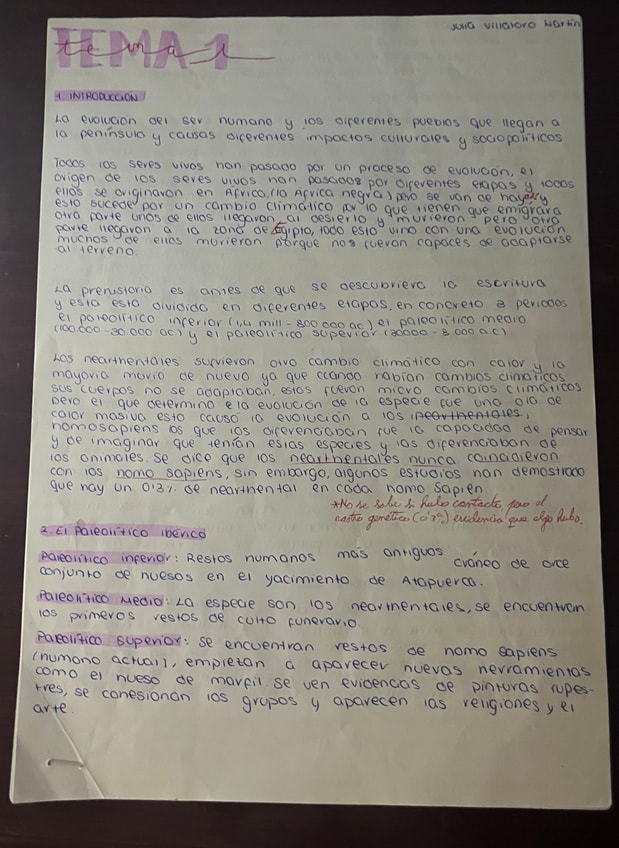 Julia Villatoro Martín
TEMA 1
tema 1
1. INTRODUCCIÓN
La evolución del ser humano y los diferentes pueblos que llegan a
la península y causas diferentes impactos culturales y sociopolíticos
Todos los seres vivos han pasado por un proceso de evolución, el
origen de los seres vivos han pasados por diferentes etapas y todos
ellos se originaron en África, (la África negra) pero se van de hay y
esto sucede por un cambio climático por lo que tienen que emigrar a
otra parte unos de ellos llegaron al desierto y murieron pero otra
parte llegaron a la zona de Egipto, todo esto vino con una evolución
muchos de ellos murieron porque nos fueron capaces de adaptarse
al terreno.
La prehistoria es antes de que se descubriera la escritura
y esta esta dividido en diferentes etapas, en concreto 3 periodos
el paleolítico inferior (1,4 mill - 300.000 ac) el paleolítico medio
(100.000 - 30.000 ac) y el paleolítico superior (30000 - 8.000 a.c)
Los nearthentales sufrieron otro cambio climático con calor y la
mayoría murió de nuevo ya que ccando habían cambios climáticos
sus cuerpos no se adaptaban, estos fueron micro cambios climáticos
pero el que determino e la evolución de la especie fue una ola de
calor masiva esto causo la evolución a los nearthentales,
homosapiens los que los diferenciaban fue la capacidad de pensar
y de imaginar que tenían estas especies y las diferenciaban de
los animales. Se dice que los nearthentales nunca coincidieron
con los homo sapiens, sin embargo, algunos estudios han demostrado
que hay un 0'3% de nearthental en cada homo sapien.
*No se sabe si hubo contacto, pero el
rastro genético (0'3%) evidencia que algo hubo.
2. El Paleolítico Ibérico
Paleolítico inferior: Restos humanos más antiguos cráneo de orce
conjunto de huesos en el yacimiento de Atapuerca.
Paleolítico Medio: La especie son los nearthentales, se encuentran
los primeros restos de culto funerario.
Paleolítico Superior: Se encuentran restos de homo sapiens
(humano actual), empiezan a aparecer nuevas herramientas
como el hueso de marfil. Se ven evidencias de pinturas rupes-
tres, se cohesionan los grupos y aparecen las religiones y el
arte.